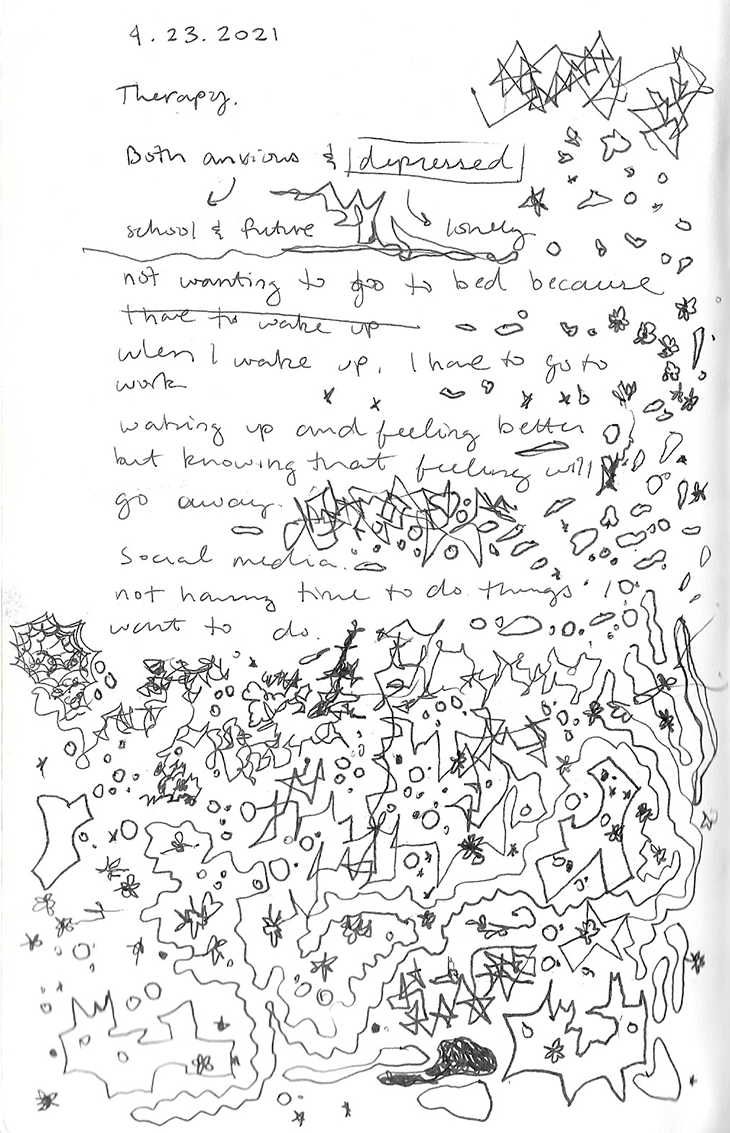 4.23.2021
Therapy.
Both anxious & depressed
school & future lonely
not wanting to go to bed because
I have to wake up
when I wake up, I have to go to
work
waking up and feeling better
but knowing that feeling will
go away.
Social media.
not having time to do things I
want to do.